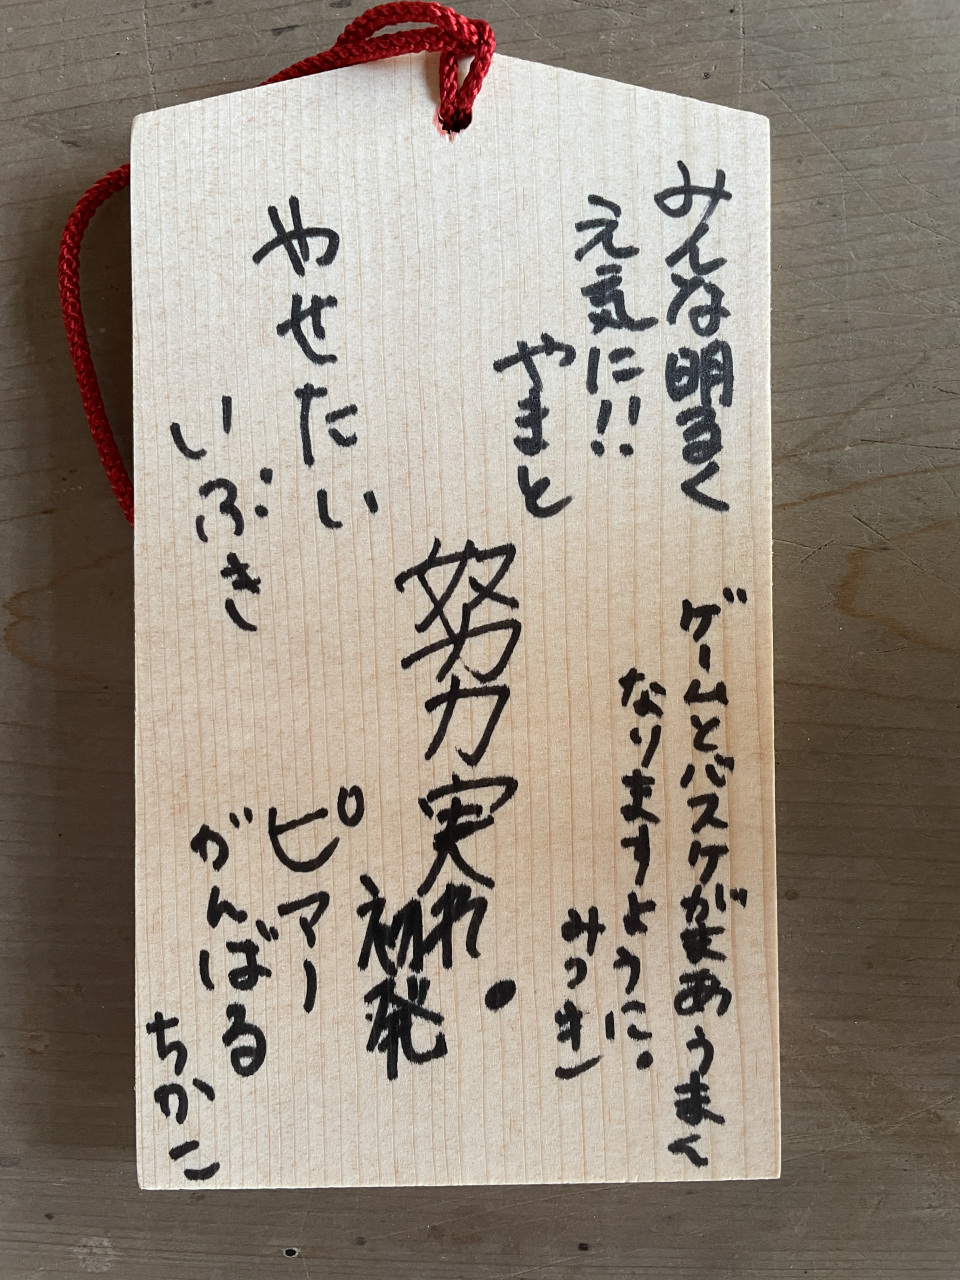 みんな明るく
元気に!!
やまと
やせたい
いぶき
ゲームとバスケがまあうまく
なりますように。
みつき
努力実れ
初
ピアー
がんばる
ちかこ